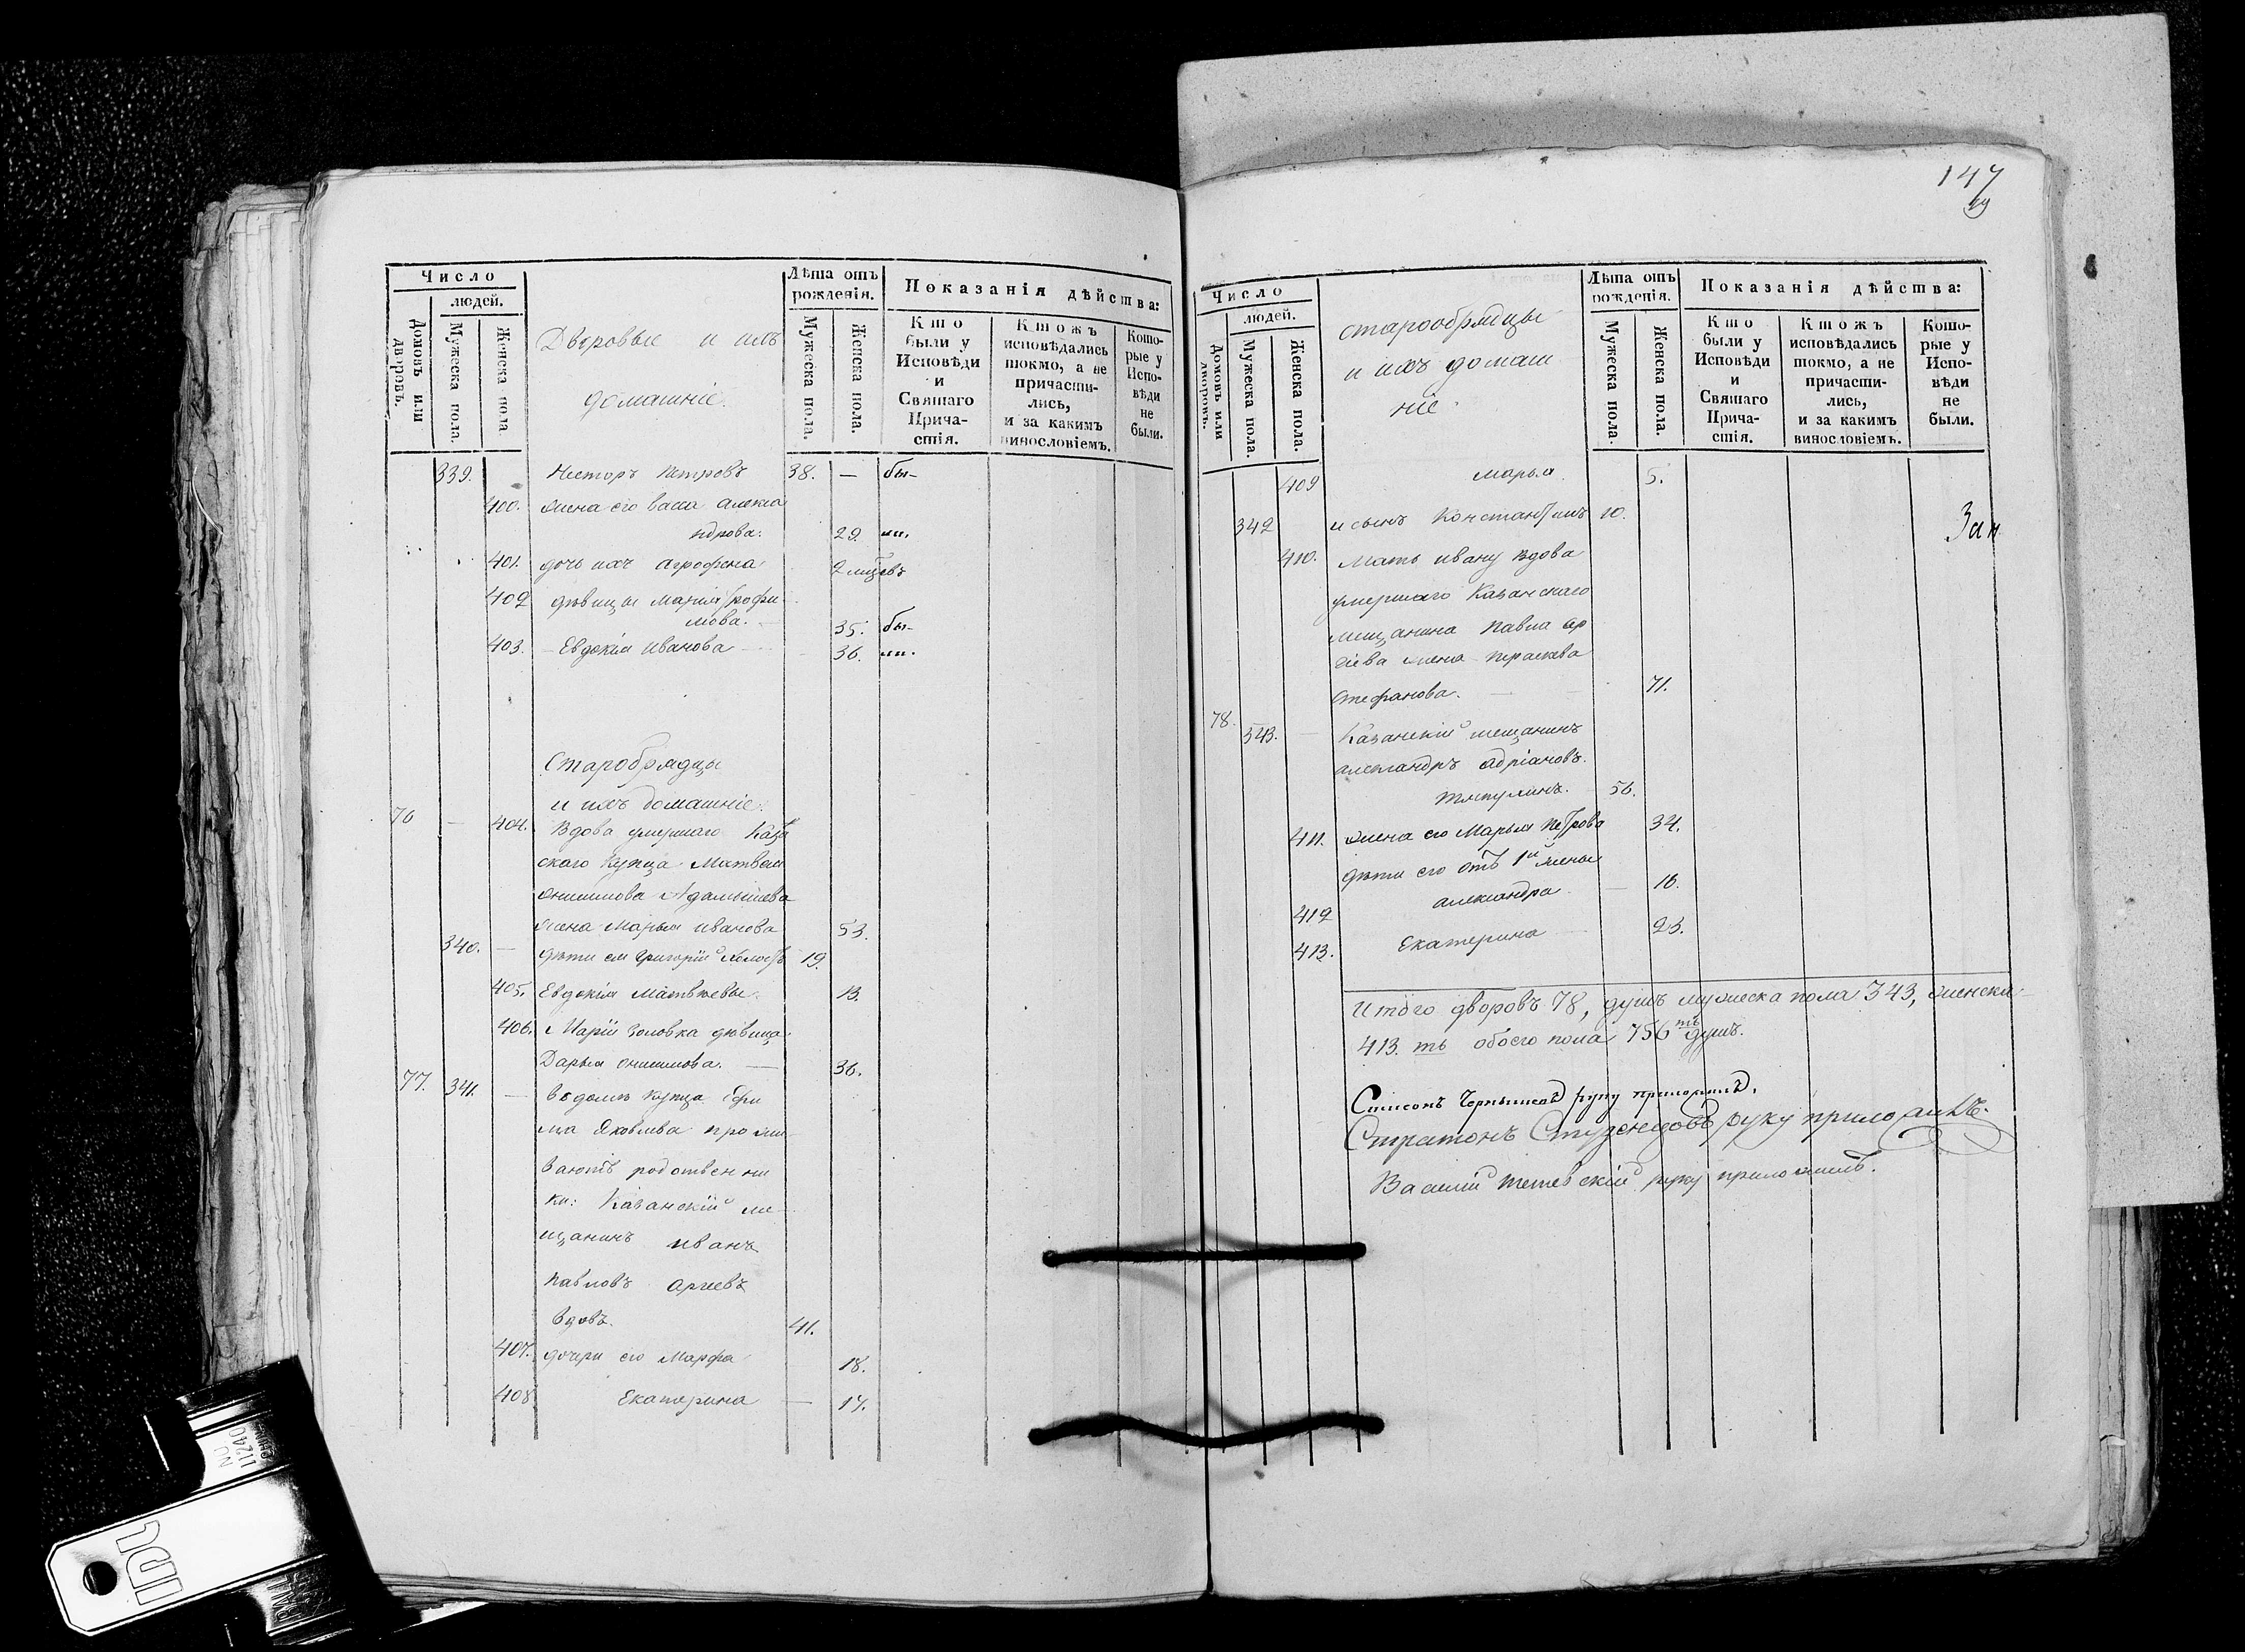 Число
людей.
Домовъ или дворовъ.
Мужеска пола.
Женска пола
Дворовые и ихъ
домашніе.
Лѣта отъ
рожденія.
Мужеска пола.
Женска пола.
Показанія дѣйства:
Кто
были у
Исповѣди
и
Святаго
Прича-
стія.
Ктожъ
исповѣдались
токмо, а не
причасти-
лись,
и за какимъ
винословіемъ.
Кото-
рые у
Испо-
вѣди
не
были.
339. Несторъ Петровъ 38. — бы-
400. жена его васса Алекса
ндрова. 29.
401. дочь ихъ Агрофена 2 мцовъ
402 дѣвицы Марія Трофи
мова. 35. бы-
403. Евдокія Иванова 36.
Старобрядцы
и ихъ домашніе.
76 — 404. Вдова умершаго Каза
скаго купца Матвея
Онисимова
жена Марья Иванова 53.
340. — дѣти ея Григорій холостъ 19.
405. Евдокія Матвѣевы 13.
406. Маріи золовка дѣвица
Дарья Онисимова. — 36.
77. 341. — в домѣ купца Ефи
ма Яковлева прожи
ваютъ родственни
ки: Казанскій ме
щанинъ Иванъ
Павловъ
вдовъ. 41.
407. дочери его Марфа 18.
408 Екатерина — 17.
147
Число
людей.
Домовъ или дворовъ.
Мужеска пола.
Женска пола.
старообрядцы
и ихъ домаш
ніе.
Лѣта отъ
рожденія.
Мужеска пола.
Женска пола.
Показанія дѣйства:
Кто
были у
Исповѣди
и
Святаго
Прича-
стія.
Ктожъ
исповѣдались
токмо, а не
причасти-
лись,
и за какимъ
винословіемъ.
Кото-
рые у
Испо-
вѣди
не
были.
409 Марья 5.
342 и сынъ Константинъ 10.
410. Мать Ивану вдова
умершаго Казанскаго
мещанина Павла ар
жена Параскева
Стефанова. — 71.
78. 343. — Казанскій мещанинъ
александръ Адріановъ.
56.
411. жена его Марья Петрова 34.
дѣти его отъ 1й жены
412 александра — 16.
413. Екатерина 23.
Итого дворовъ 78, душъ мужеска пола 343, женска
413. ть обоего пола 756ть душъ.
руку приложилъ.
Стратонъ Студенцовъ руку приложилъ.
Василій руку приложилъ.